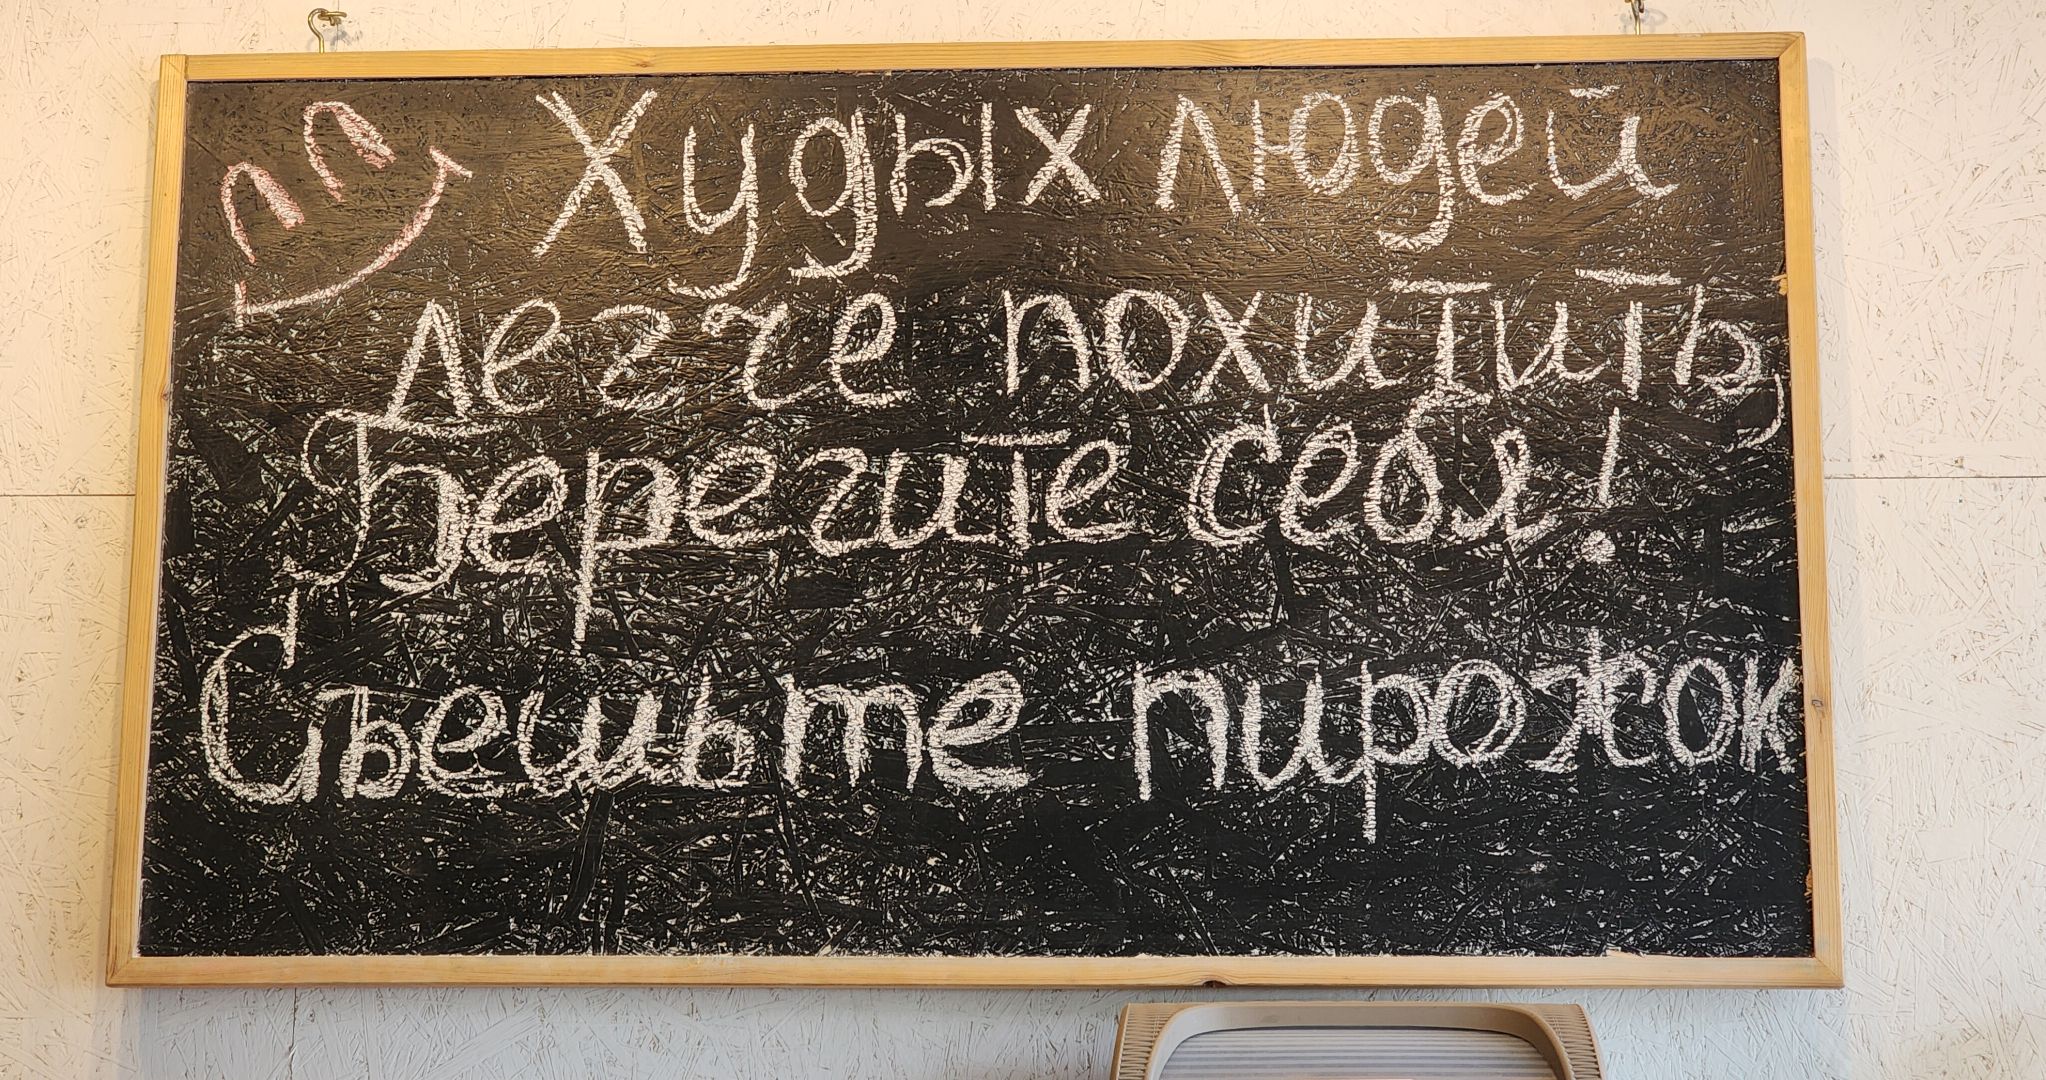 Худых людей
легче похитить,
Берегите себя!
Съешьте пирожок